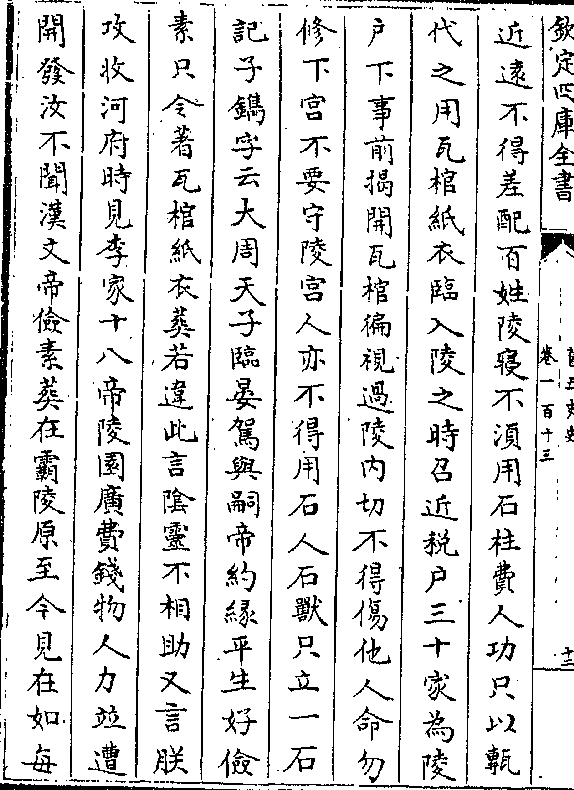 欽定四庫全書
舊五代史
卷一百十三
十三
近遠不得差配百姓陵寢不湏用石柱費人功只以甎
代之用瓦棺紙衣臨入陵之時召近税户三十家為陵
户下事前揭開瓦棺徧視過陵内切不得傷他人命勿
修下宫不要守陵宫人亦不得用石人石獸只立一石
記子鐫字云大周天子臨晏駕與嗣帝約縁平生好儉
素只令著瓦棺紙衣葬若違此言隂靈不相助又言朕
攻收河府時見李家十八帝陵園廣費錢物人力竝遭
開發汝不聞漢文帝儉素葬在霸陵原至今見在如每